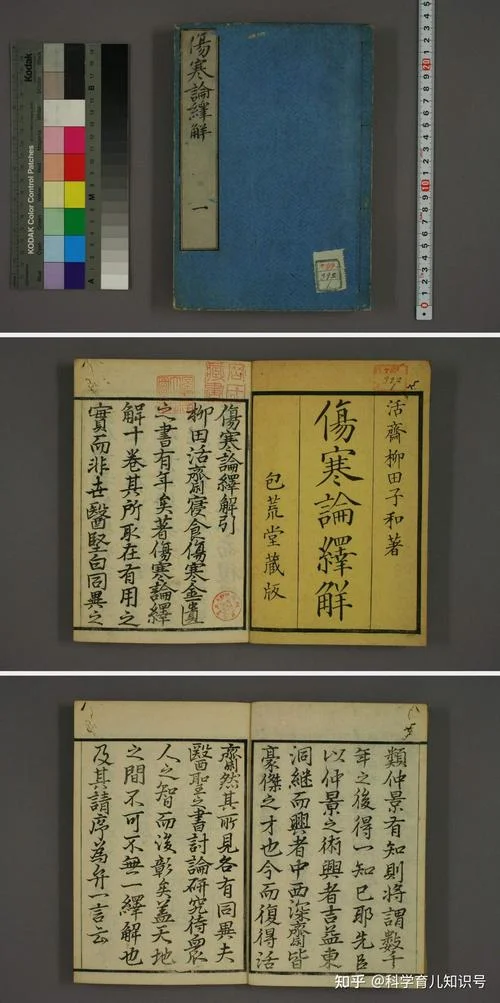 傷寒論繹解
一
Kodak
KODAK Color Control Patches
活齋柳田子和著
傷寒論繹解
包荒堂藏版
傷寒論繹解引
柳田活齋寢食傷寒金匱
之書有年矣著傷寒論繹
解十卷其所取在有用之
實而非世醫堅白同異之
類仲景有知則將謂數千
年之後得一知己耶先臣
以仲景之術興者吉益東
洞繼而興者中西深齋皆
豪傑之才也今而復得活
齋然其所見各有同異夫
醫聖之書討論研究待衆
人之智而後彰矣蓋天地
之間不可不無一繹解也
及其請序為弁一言云
知乎 @科学育儿知识号